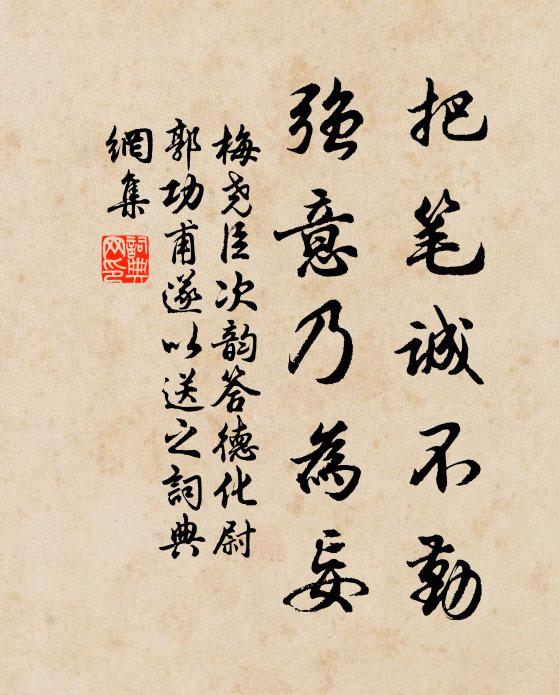 把笔诚不勤
强意乃為妄
梅尧臣次韵答德化尉
郭功甫遂以送之詞典
網集
詞典
网印